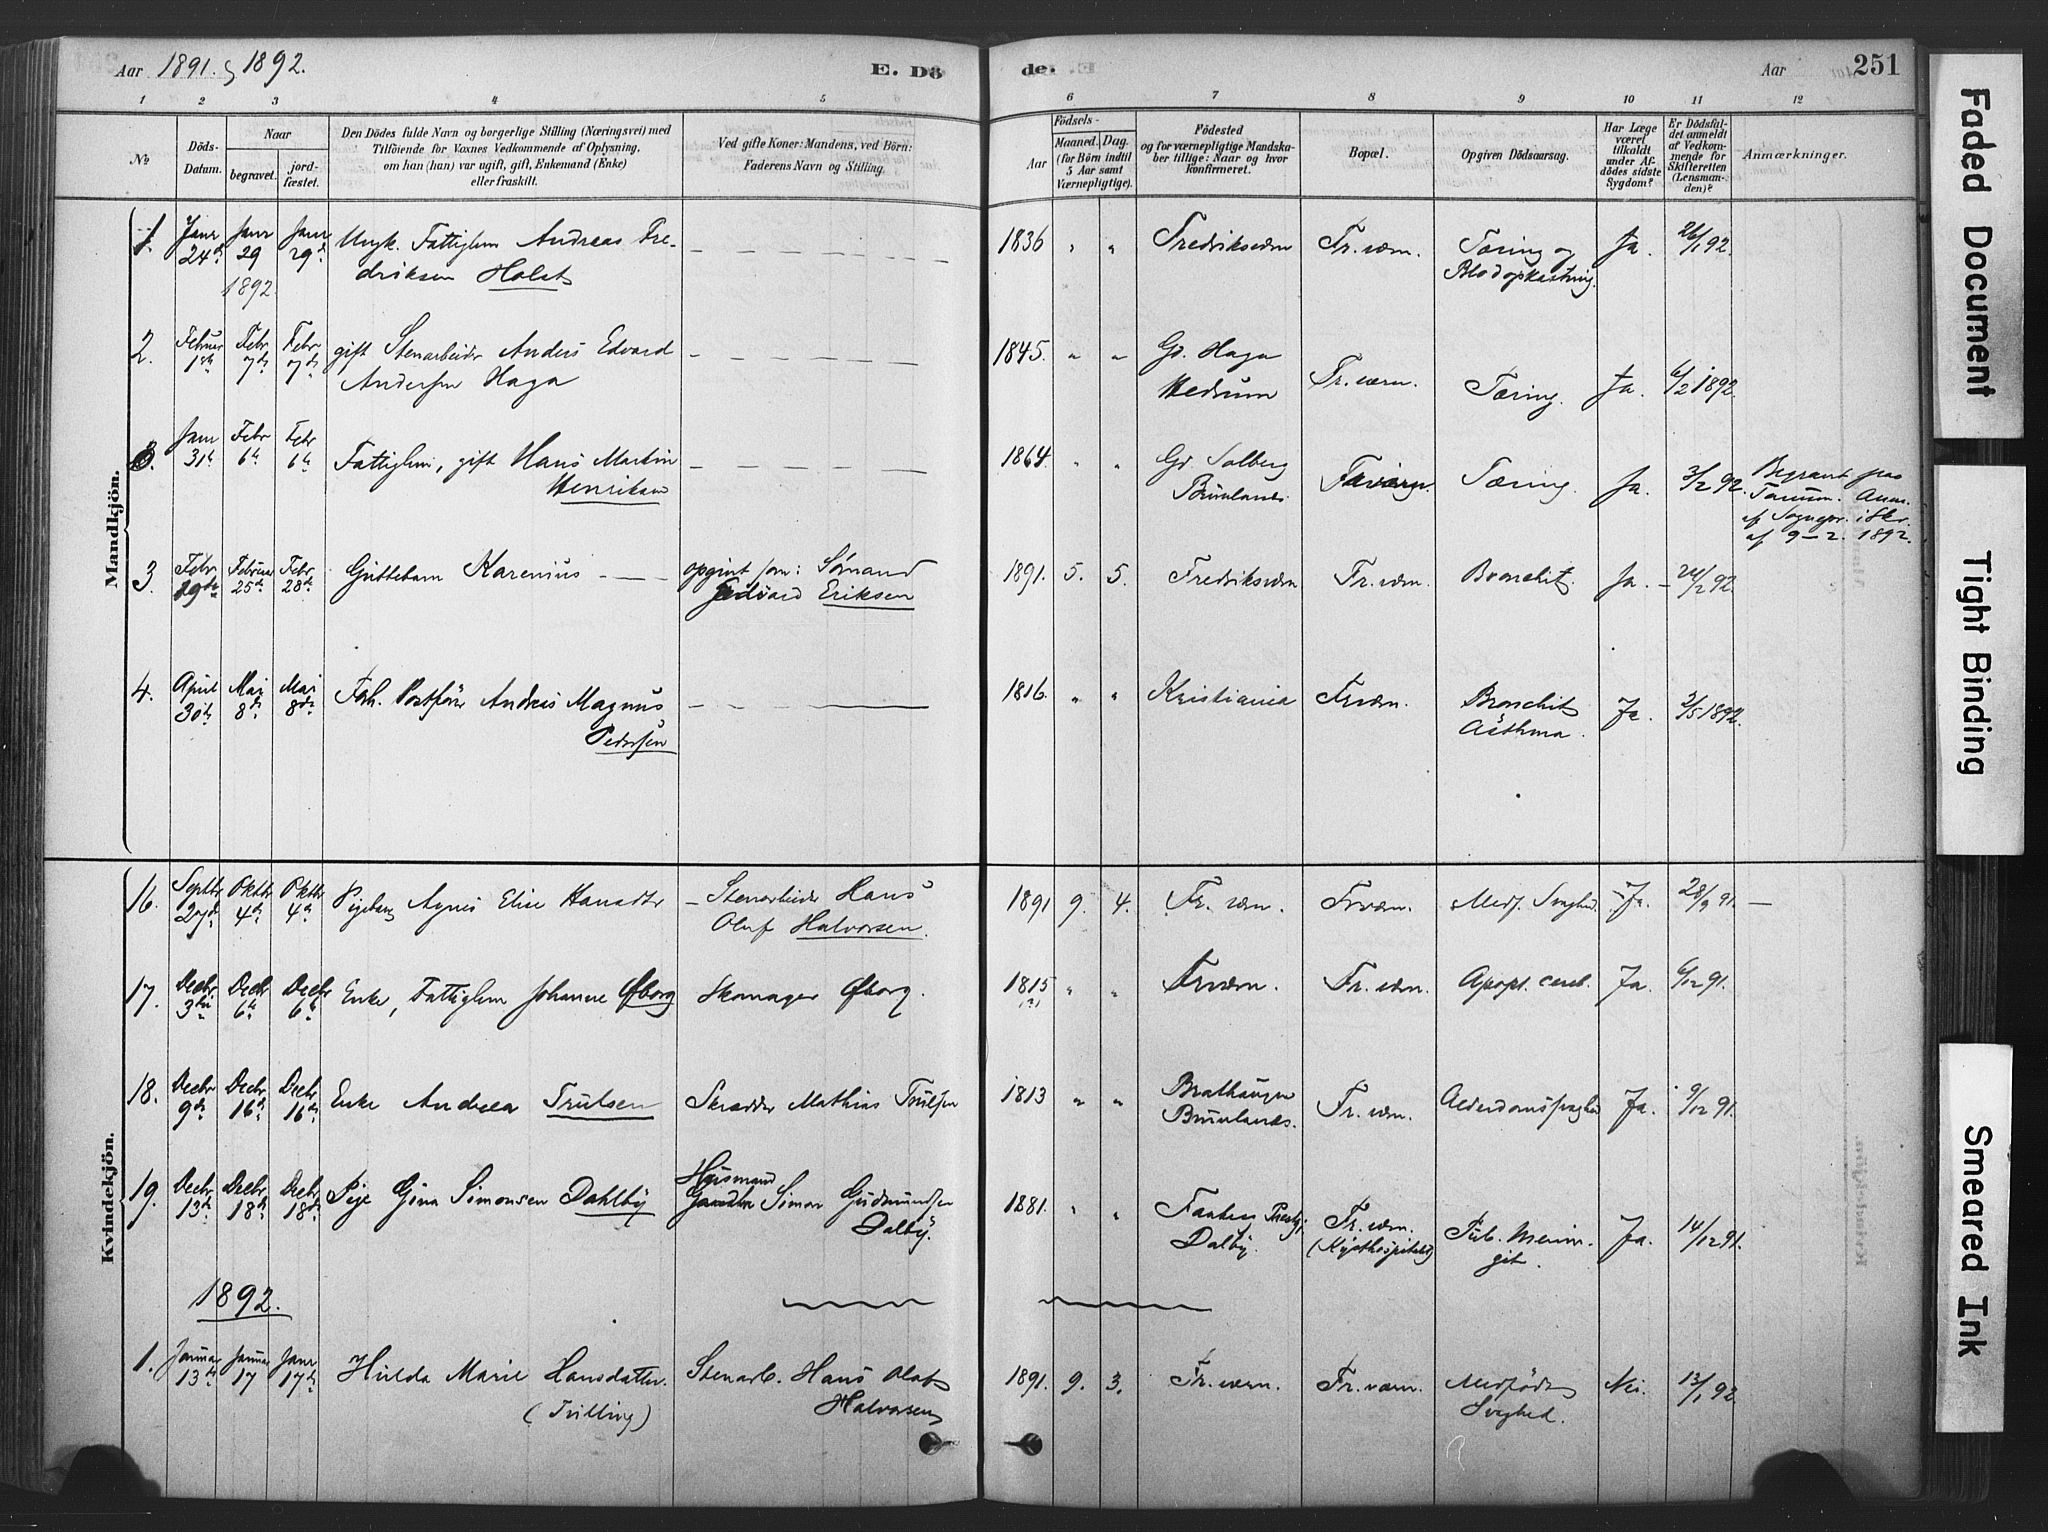 Aar 1891. & 1892. E. Dö de. Aar 251
1 2 3 4 5 6 7 8 9 10 11 12
No
Döds-
Datum.
Naar
begravet.
jord-
fæstet.
Den Dödes fulde Navn og borgerlige Stilling (Næringsvei) med
Tilföiende for Voxnes Vedkommende af Oplysning,
om han (hun) var ugift, gift, Enkemand (Enke)
eller fraskilt.
Ved gifte Koner: Mandens, ved Börn:
Faderens Navn og Stilling.
Födsels-
Aar
Maaned. Dag.
(for Börn indtil
5 Aar samt
Værnepligtige).
Födested
og for værnepligtige Mandska-
ber tillige: Naar og hvor
konfirmeret.
Bopæl.
Opgiven Dödsaarsag.
Har Læge
været
tilkaldt
under Af-
dödes sidste
Sygdom?
Er Dödsfal-
det anmeldt
af Vedkom-
mende for
Skifteretten
(Lensman-
den)?
Anmærkninger.
Mandkjön.
1. Janr Janr Janr Ungk. Fattiglem Andreas Fre- 1836 " " Fredriksværn Fr. værn. Tæring og Ja. 26/1 92.
24de 29 29de driksen Holst Blodopkastning.
1892.
2. Februar Febr Febr gift Stenarbeider Anders Edvard 1845. " " Gd. Haga Fr. værn. Tæring. Ja. 6/2 1892.
1ste 7de 7de Andersen Haga Hedrum
3. Janr Febr Febr Fattiglem, gift Hans Martin 1864. " " Gd. Solberg Tæring. Ja. 3/2 92. Begravet paa
31te 6te 6te Henriksen Brunlanes Tanum. Anm.
af Sognepr. i Skr.
af 9-2 1892.
3 Febr Februar Febr Guttebarn Karenius opgivet som: Sørnand 1891. 5. 5. Fredriksværn Fr. værn. Bronchit. Ja. 92.
19de 25de 28de Edvard Eriksen
4. April Mai Mai Fh. Postfører Andreas Magnus 1816. " " Kristiania Fr værn. Bronchit Ja. 2/5 1892.
30te 8de 8de Pedersen Asthma.
Kvindekjön.
16. Septbr Oktbr Oktbr Pigebarn Agnes Elise Hansdtr Stenarbeider Hans 1891 9. 4. Fr. værn. Fr værn. Medf. Svaghed. Ja. 28/9 91.
27de 4de 4de Oluf Halvorsen.
17. Decbr Decbr Decbr Enke, Fattiglem Johanne Øfborg Skomager Øfborg. 1815 " " Fr værn. Fr. værn. Apopl. cereb. Ja. 6/12 91.
3die 6te 6te (?)
18. Decbr Decbr Decbr Enke Andrea Trulsen Skrædder Mathias Trulsen 1813 " " Brathaugen Fr. værn. Alderdomssvaghed Ja. 9/12 91.
9de 16de 16de Brunlanes.
19. Decbr Decbr Decbr Pige Gina Simonsen Dahlby Husmand Simon Gudmundsen 1881. " " Dalby. Fr. værn. Tub. Menin- Ja. 14/12 91.
13de 18de 18de Dalby. (Kysthospitalet) git.
1892.
1. Januar Januar Janr Hulda Marie Hansdatter Stenarb. Hans Oluf 1891. 9. 3. Fr. værn. Fr. værn. Medfödt Nei. 13/1 92
13de 17 17de (Tvilling) Halvorsen Svaghed.
Faded Document
Tight Binding
Smeared Ink